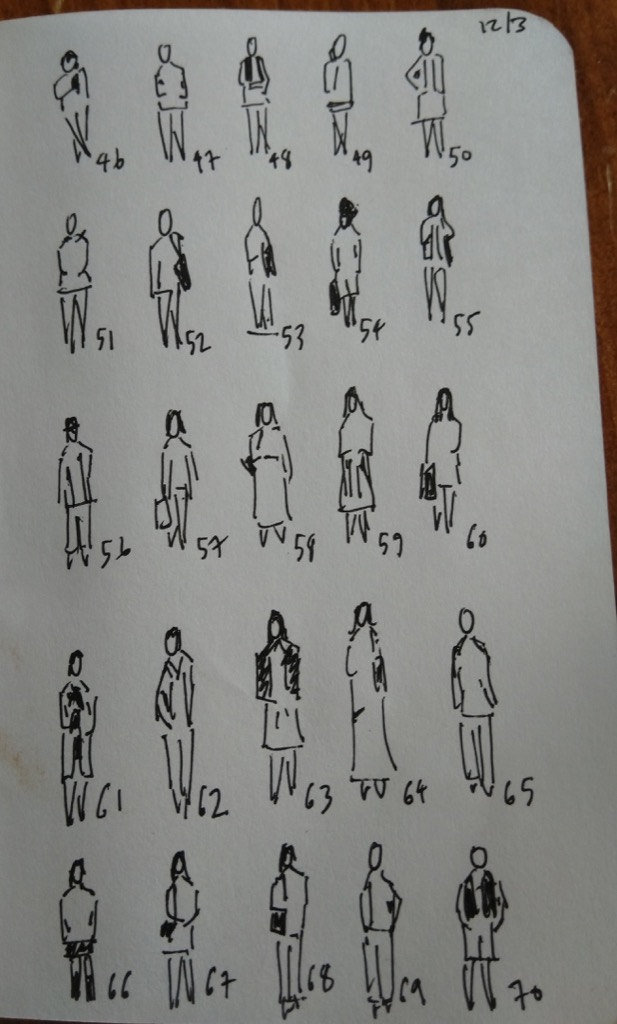 12/3
46 47 48 49 50
51 52 53 54 55
56 57 58 59 60
61 62 63 64 65
66 67 68 69 70